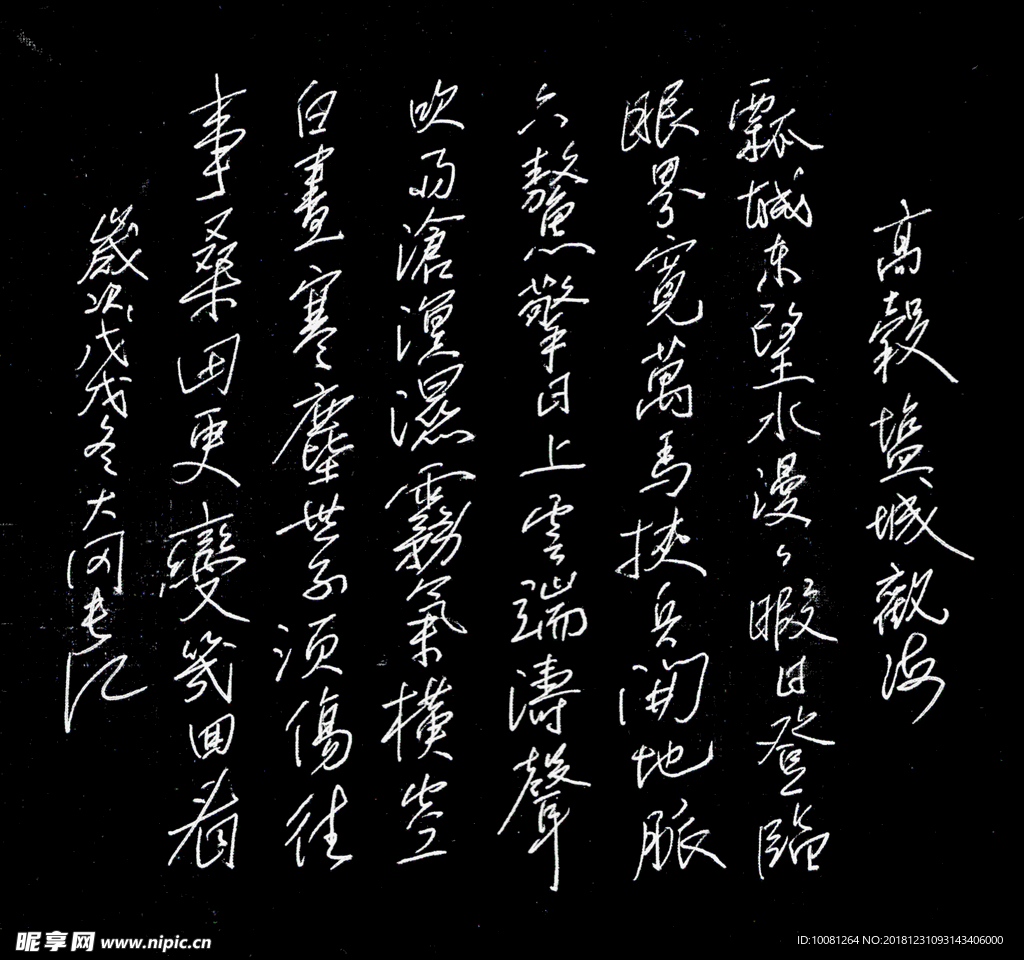 高穀 盐城觀海
瓢城东望水漫々暇日登臨
眼界寬萬馬挾兵開地脈
六鰲擎日上雲端濤聲
吹雨滄溟濕霧氣橫空
白晝寒塵世不須傷往
事桑田更變幾回看
歲次戊戌冬大河長江
昵享网 www.nipic.cn
ID:10081264 NO:20181231093143406000